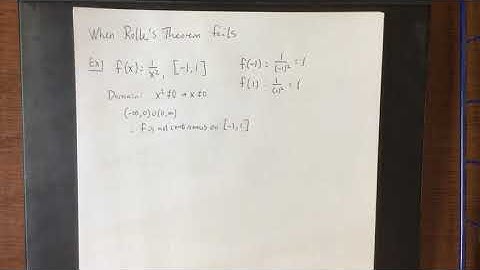 When Rolle's Theorem fails
Ex] f(x) = 1/x², [-1, 1]
f(-1) = 1/(-1)² = 1
f(1) = 1/(1)² = 1
Domain: x² ≠ 0 → x ≠ 0
(-∞, 0) ∪ (0, ∞)
∴ f is not continuous on [-1, 1]